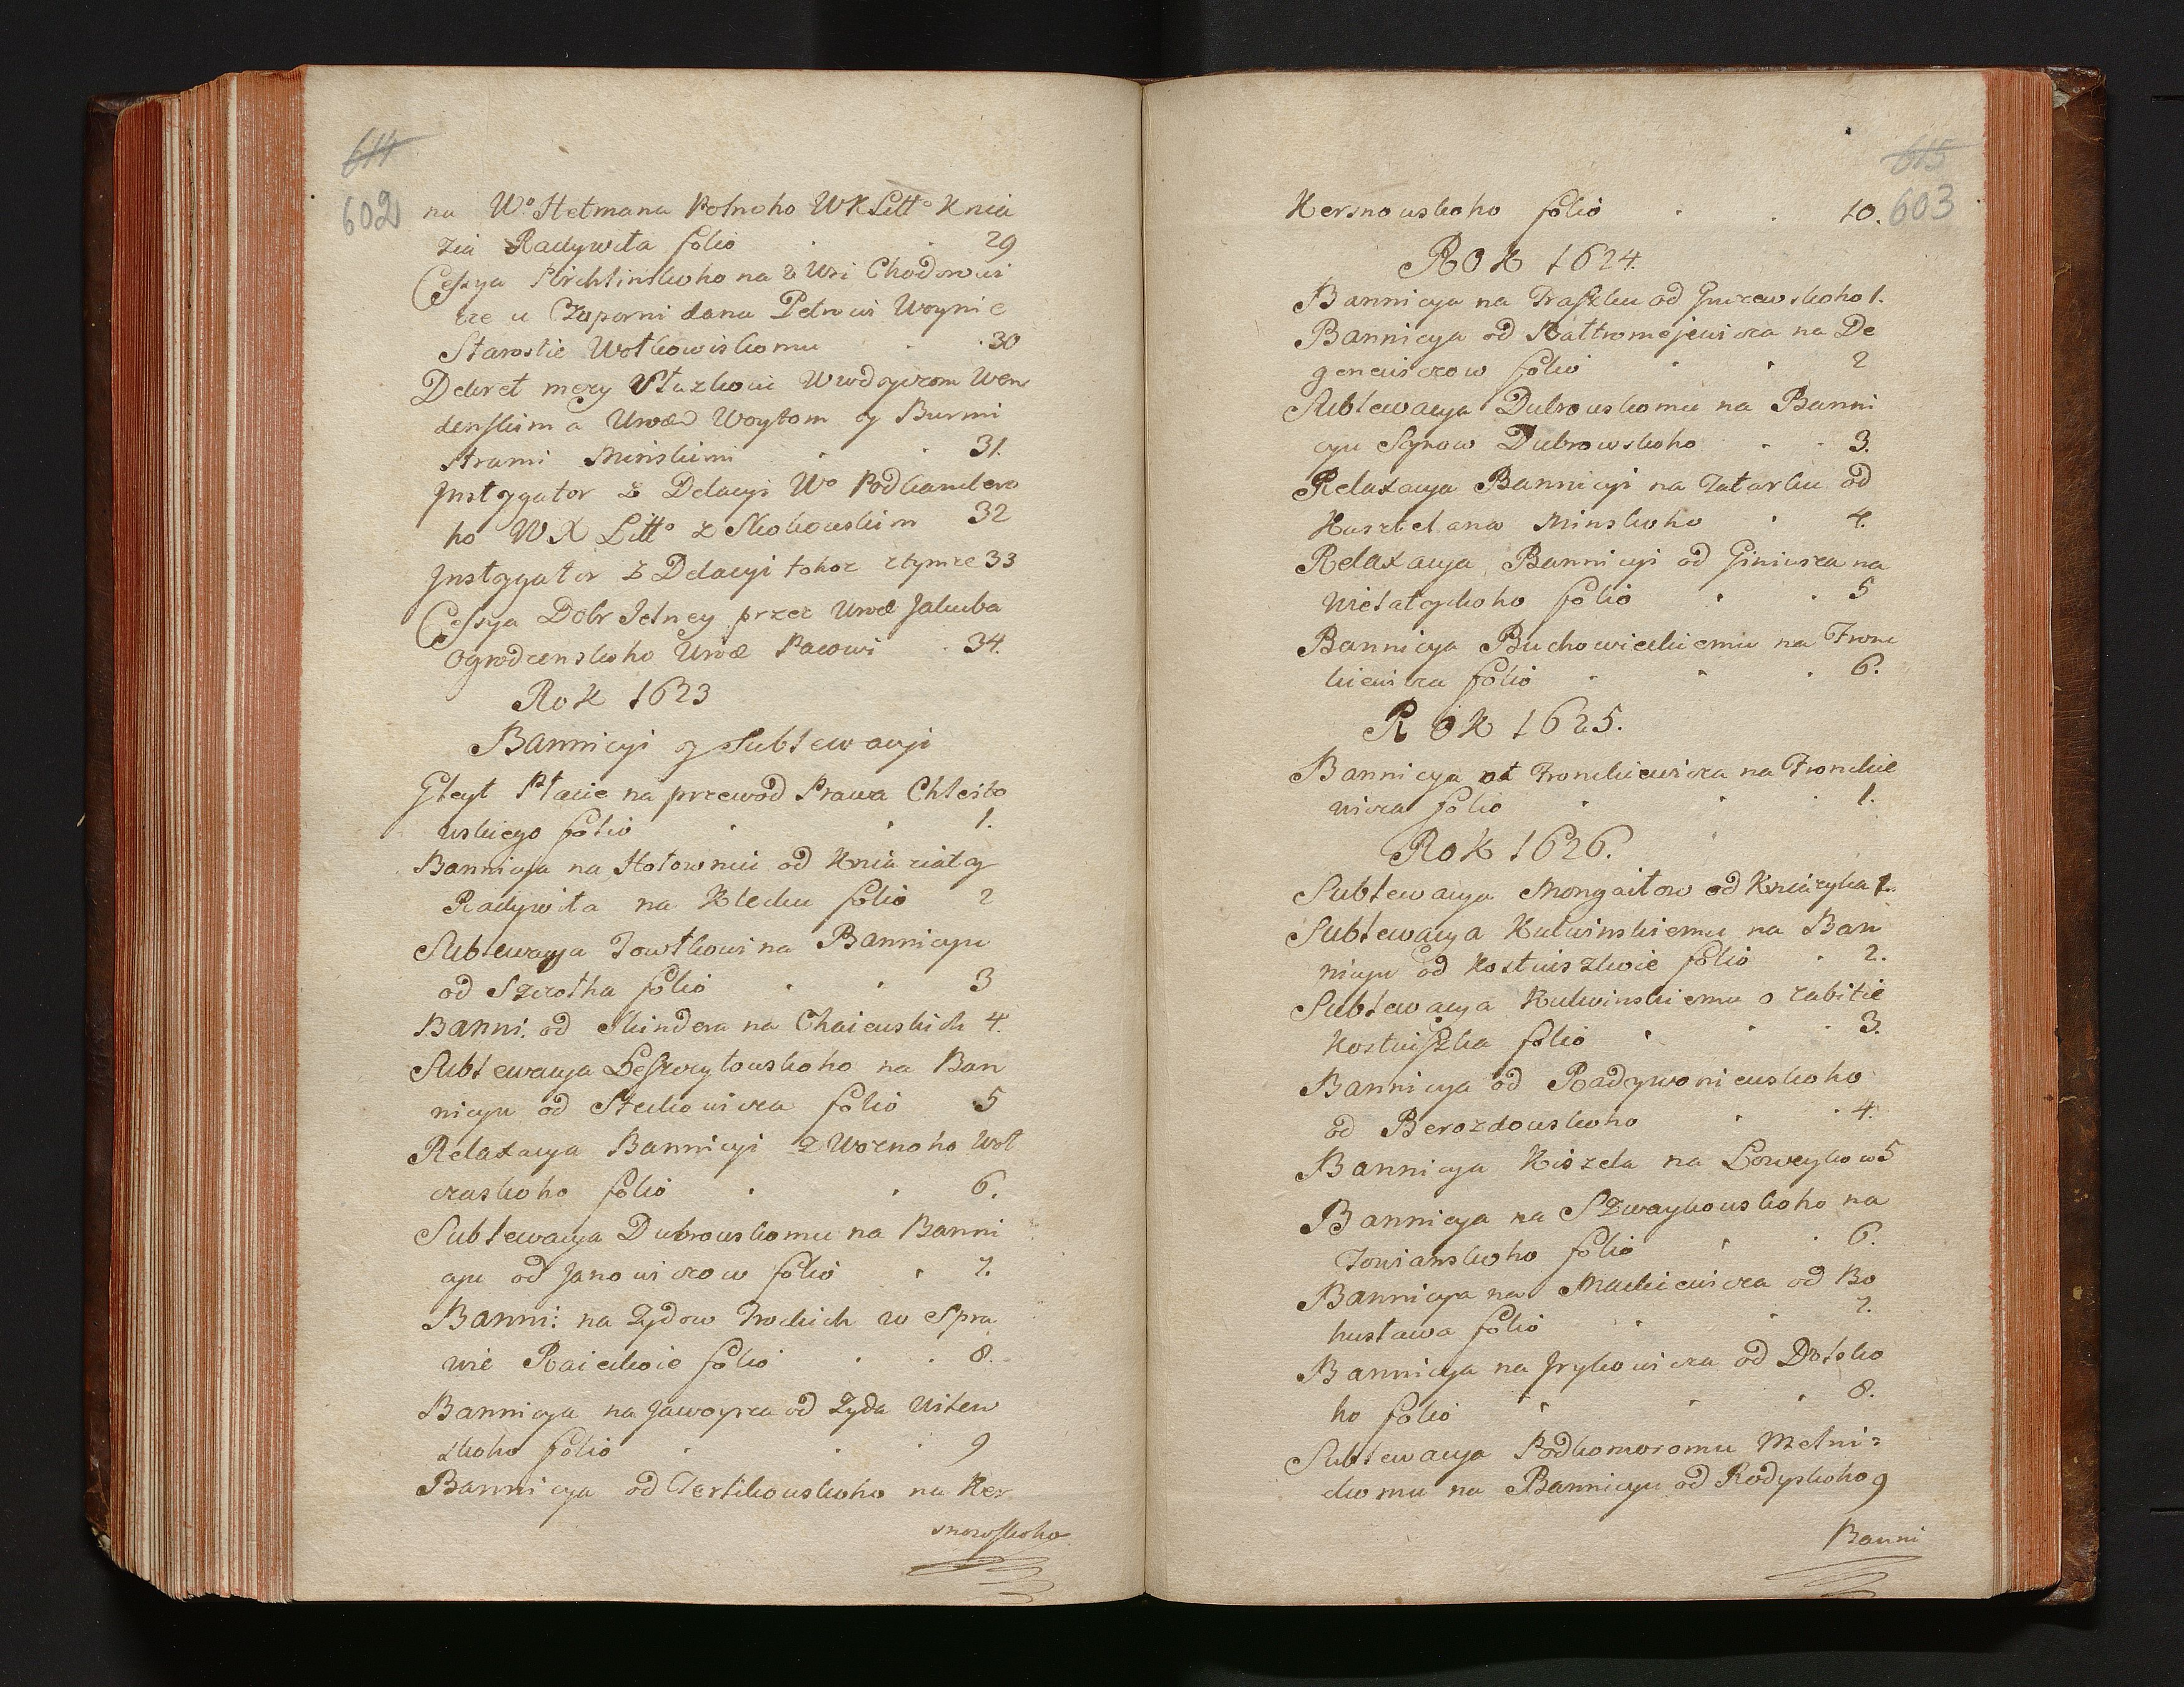 614
602
na Wº Hetmana Polnoho WKLittº Knia
zia Radywiła folio . . 29
Cessya Pirchlinskoho na 2 Wsi Chodorowi
cze u Czaporni dana Petrowi Woynie
Starostie Wołkowiskomu . . 30
Dekret mezy Stazkowi Uwodzicrom Wen
denskim a Urzed Woytom y Burmi
strami Minskimi . . 31.
Jnstygator z Delacyi Wº Podkanclero
ho WX Littº z Skokowskim 32
Jnstygator z Delacyi tohoz ztymze 33
Cessya Dobr Jelney przez Urod Jakuba
Ogrodzenskoho Urod Pacowi . 34.
Rok 1623
Bannicyi y Sublewacyi
Gleyt Placie na przewod Prawa Chlebo
wskiego folio . . 1.
Bannicya na Hołownii od Kniaziaty
Radywiła na Klecku folio 2
Sublewacya Towtkowi na Bannicyu
od Szrotha folio . . 3
Banni. od Skindera na Chaiewskich 4.
Sublewacya Leszczyłowskoho na Ban
nicyu od Steckowicza folio . 5
Relaxacya Bannicyi z Woznoho Woł
czaskoho folio . . 6.
Sublewacya Dubrowskomu na Banni
cyu od Janowiczow folio . 7.
Banni: na Zydow Trockich w Spra
wie Raieckoie folio . . 8.
Bannicya na Jawoysza od Zyda Witew
skoho folio . . . 9
Bannicya od Terlikowskoho na Ker
snowskoho
615
603
Kersnowskoho folio . . 10.
ROK 1624.
Bannicya na Traszku od Gurzewskoho 1.
Bannicya od Bałtromejewicza na De
geneiwiczow folio . . 2
Sublewacya Dubrowskomu na Banni
cyu Synow Dubrowskoho . . 3.
Relaxacya Bannicyi na Tatarku od
Kasztelana Minskoho . 4.
Relaxacya Bannicyi od Giniewicza na
Nielatyckoho folio . . 5
Bannicya Buchowieckiemu na Fronc
kiewicza folio . . . 6.
ROK 1625.
Bannicya ot Fronckiewicza na Fronckie
wicza folio . . . 1.
Rok 1626.
Sublewacya Mongaitow od Kniazyka 1.
Sublewacya Kulwinskiemu na Ban
nicyu od Kostuiszkoie folio . 2.
Sublewacya Kulwinskiemu o zabitie
Kostuiszka folio . . . 3.
Bannicya od Radywoniewskoho
od Berozdowskoho . . 4.
Bannicya Kiszela na Łoweykow 5
Bannicya na Szwaykowskoho na
Towianskoho folio . . 6.
Bannicya na Mackiewicza od Bo
husława folio . . 7.
Bannicya na Jrykowicza od Dolsko
ho folio . . . 8.
Sublewacya Podkomoromu Mełni=
ckomu na Bannicyu od Rodyskoho 9
Banni